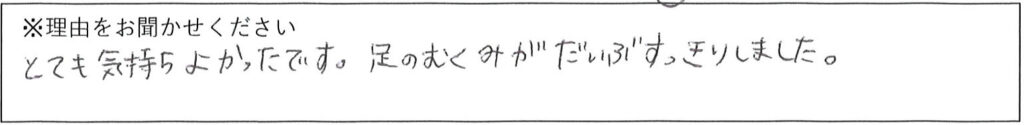 ※理由をお聞かせください
とても気持ちよかったです。足のむくみがだいぶすっきりしました。